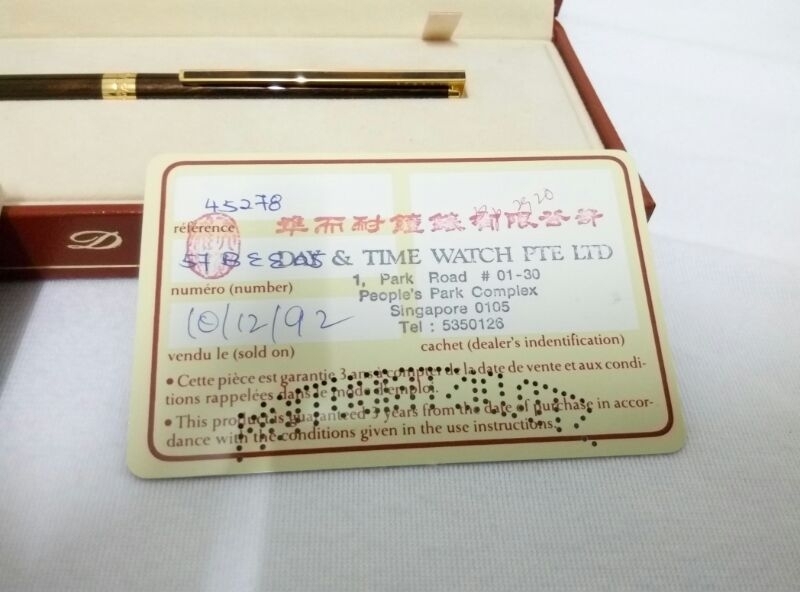 D
45278
référence
DAY & TIME WATCH PTE LTD
1, Park Road # 01-30
People's Park Complex
Singapore 0105
Tel : 5350126
numéro (number)
10/12/92
vendu le (sold on)
cachet (dealer's indentification)
• Cette pièce est garantie 3 ans à compter de la date de vente et aux condi-
tions rappelées dans le mode d'emploi.
• This product is guaranteed 3 years from the date of purchase in accor-
dance with the conditions given in the use instructions.